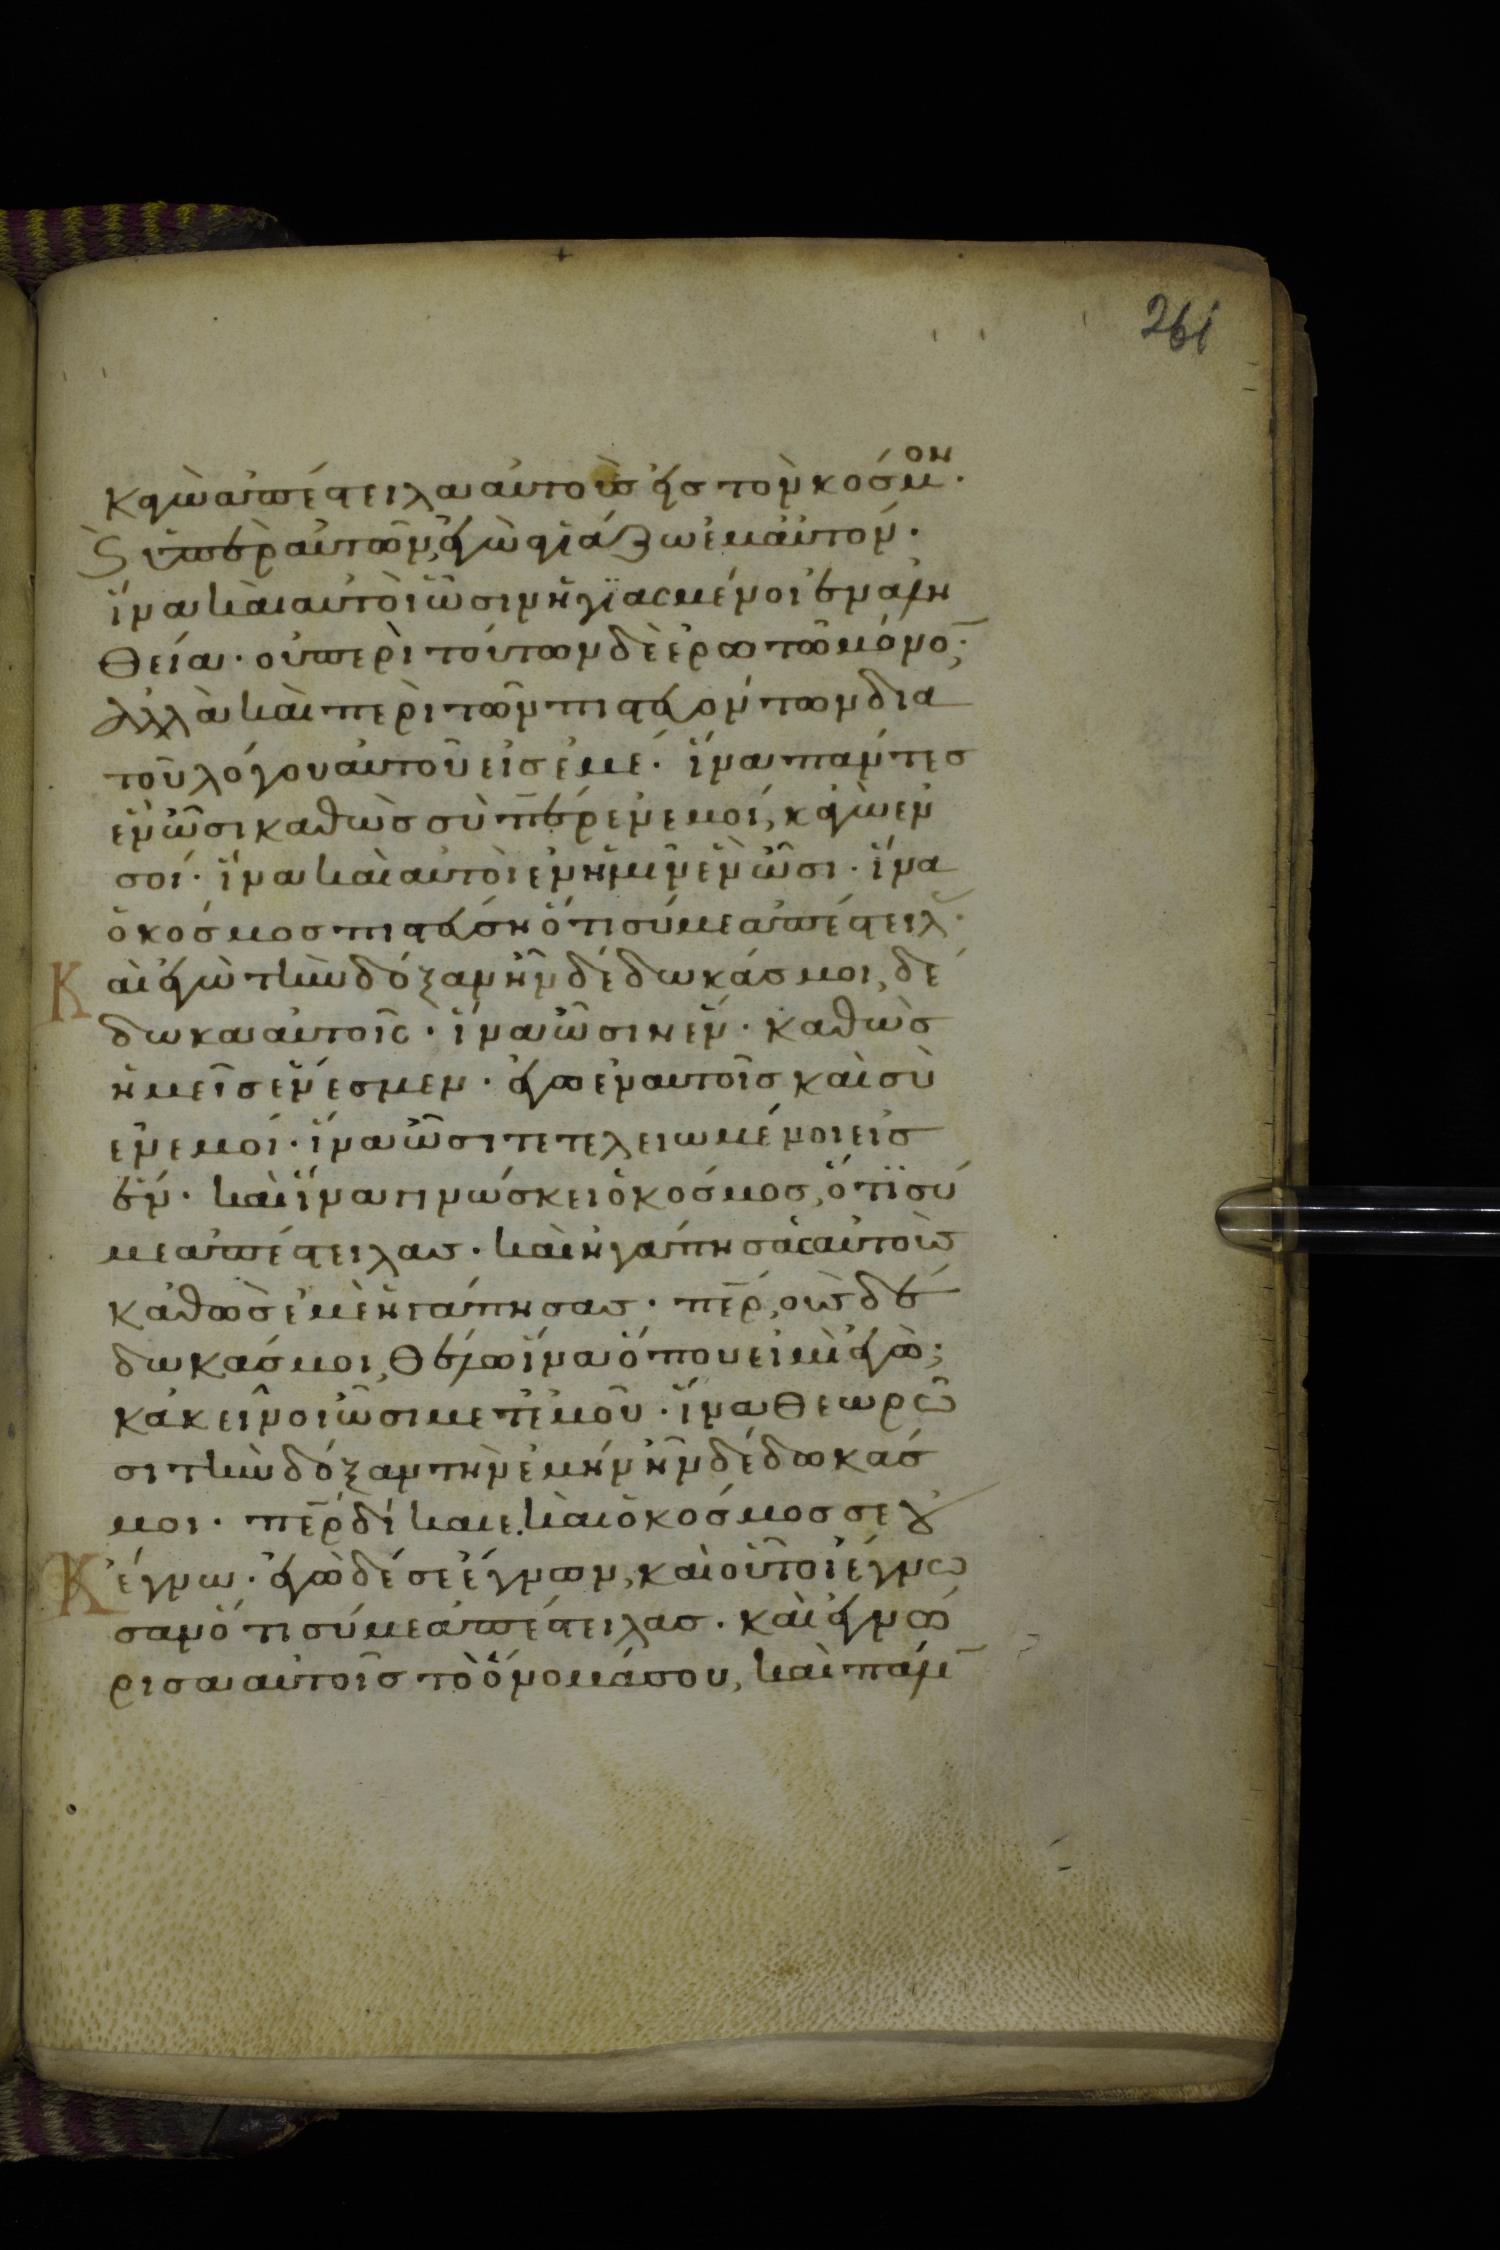 261
κἀγὼ ἀπέστειλα αὐτοὺς εἰς τὸν κόσμον·
καὶ ὑπὲρ αὐτῶν, ἐγὼ ἁγιάζω ἐμαυτόν·
ἵνα καὶ αὐτοὶ ὦσιν ἡγϊασμένοι ἐν ἀλη
θεία· οὐ περὶ τούτων δὲ ἐρωτῶ μόνο̅·
ἀλλὰ καὶ περὶ τῶν πιστευόντων δια
τοῦ λόγου αὐτοῦ εἰς ἐμέ· ἵνα πάντες
ἓν ὦσι καθὼς σὺ πε̅ρ ἐν ἐμοί, κἀγὼ ἐν
σοί· ἵνα καὶ αὐτοὶ ἐν ἡμῖν ἓν ὦσι· ἵνα
ὁ κόσμος πιστεύση ὅτι σύ με ἀπέστειλ·
Καὶ ἐγὼ τὴν δόξαν ἣν δέδωκάς μοι, δέ
δωκα αὐτοῖς· ἵνα ὦσιν ἕν· καθὼς
ἡμεῖς ἕν ἐσμεν· ἐγὼ ἐν αὐτοῖς καὶ σὺ
ἐν ἐμοί· ἵνα ὦσι τετελειωμένοι εἰς
ἕν· καὶ ἵνα γινώσκει ὁ κόσμος, ὅτϊ σύ
με ἀπέστειλας· καὶ ἠγάπησας αὐτοὺς
καθὼς ἐμὲ ἠγάπησας· πε̅ρ, οὓς δέ
δωκάς μοι, θέλω ἵνα ὅπου εἰμὶ ἐγὼ,
κἀκεῖνοι ὦσι μετ ἐμοῦ· ἵνα θεωρῶ
σι τὴν δόξαν τὴν ἐμήν ἣν δέδωκάς
μοι· πε̅ρ δίκαιε. καὶ ὁ κόσμος σε οὐ
Κ ἔγνω· ἐγὼ δέ σε ἔγνων, καὶ οὗτοι ἔγνω
σαν ὅτι σύ με ἀπέστειλας· καὶ ἐγνώ
ρισα αὐτοῖς τὸ ὄνομά σου, καὶ πάλι̅